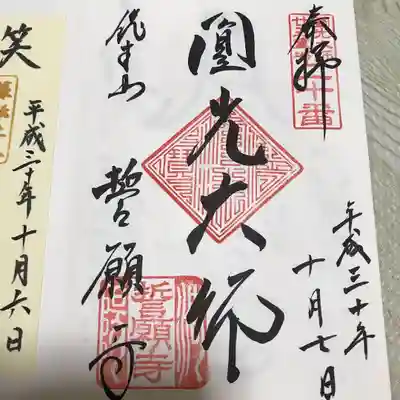 奉拝
二十番
平成三十年
十月七日
圓光大師
深草山
誓願寺
誓願寺
笑
平成三十年十月六日